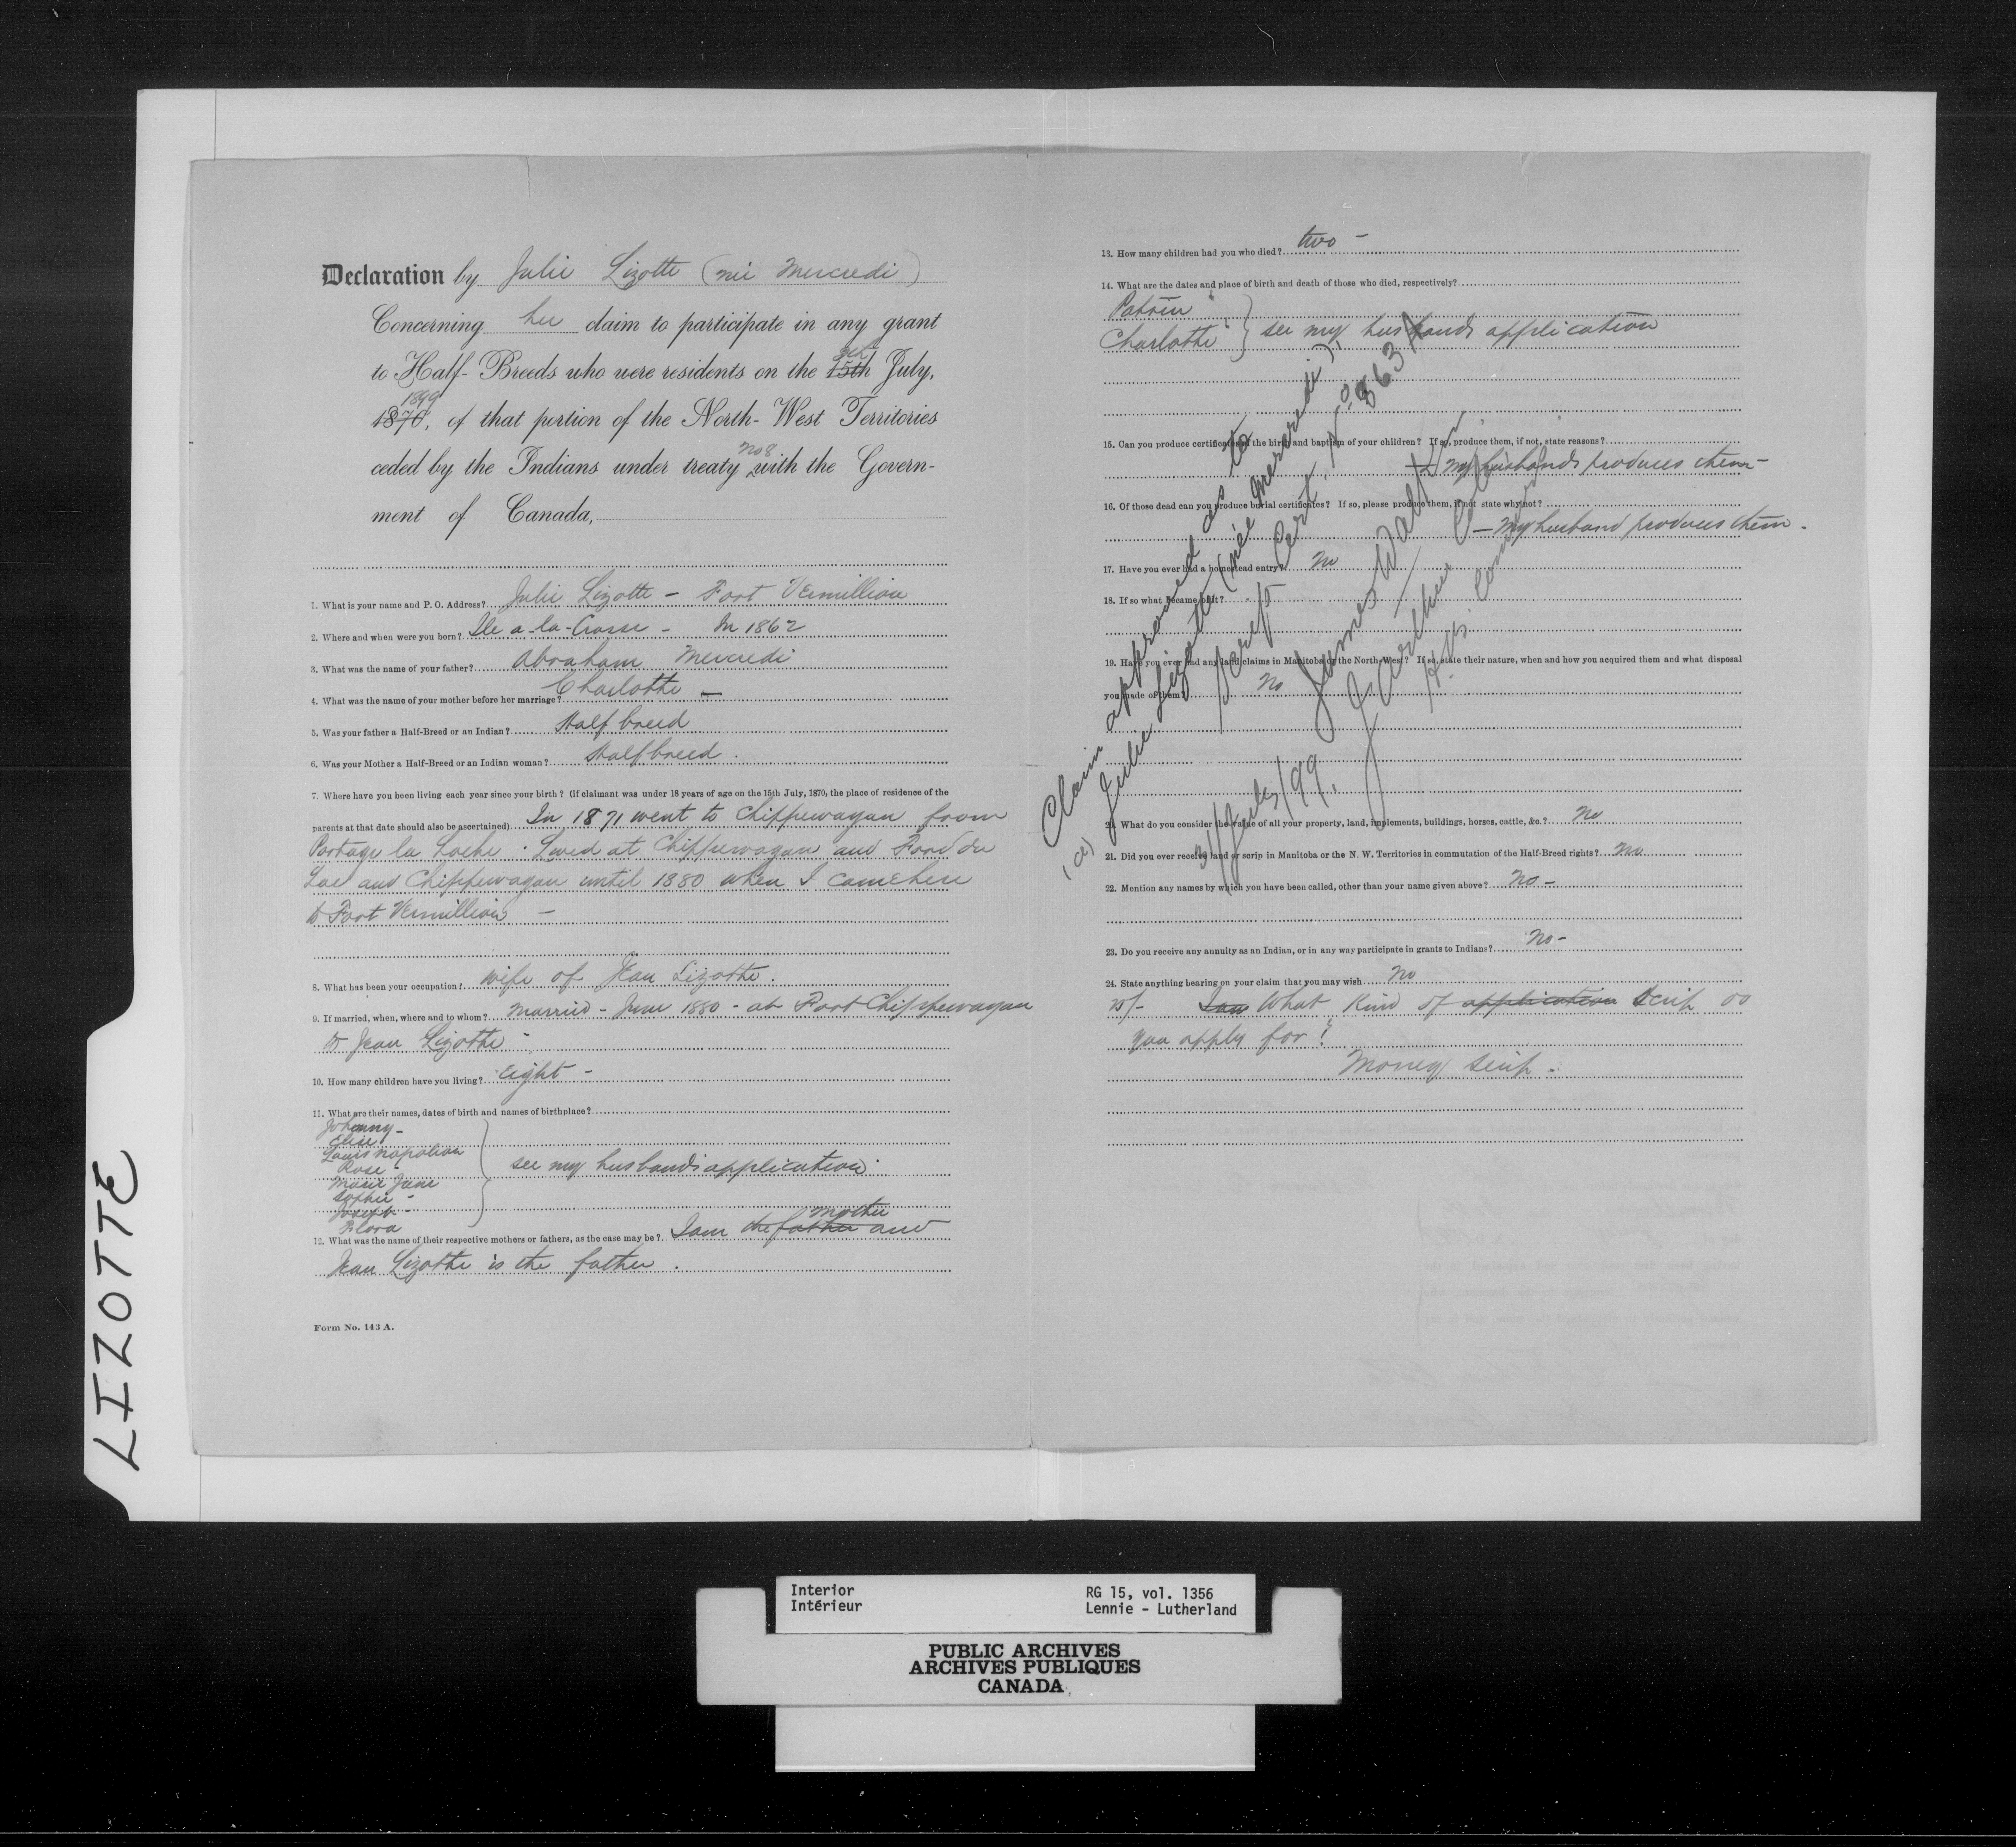 Declaration by Julie Lizotte (née Mercredi)
Concerning her claim to participate in any grant
to Half-Breeds who were residents on the 15th July,
1899
1870, of that portion of the North-West Territories
No 8
ceded by the Indians under treaty with the Govern-
ment of Canada,
1. What is your name and P. O. Address? Julie Lizotte - Fort Vermillion
2. Where and when were you born? Ile a-la-Crosse - In 1862
3. What was the name of your father? Abraham Mercredi
4. What was the name of your mother before her marriage? Charlotte -
5. Was your father a Half-Breed or an Indian? Half breed
6. Was your Mother a Half-Breed or an Indian woman? Half breed.
7. Where have you been living each year since your birth? (if claimant was under 18 years of age on the 15th July, 1870, the place of residence of the
parents at that date should also be ascertained) In 1871 went to Chippewayan from
Portage la Loche. Lived at Chippewayan and Fond du
Lac and Chippewayan until 1880 when I came here
to Fort Vermillion -
8. What has been your occupation? Wife of Jean Lizotte.
9. If married, when, where and to whom? Married - June 1880 - at Fort Chippewayan
to Jean Lizotte -
10. How many children have you living? Eight -
11. What are their names, dates of birth and names of birthplace?
Johnny -
Elise
Louis Napoleon
Rose -
see my husbands application.
Marie Jane
Sophie -
Joseph -
Flora
mother
12. What was the name of their respective mothers or fathers, as the case may be? I am the father and
Jean Lizotte is the father.
Form No. 143 A.
13. How many children had you who died? two -
14. What are the dates and place of birth and death of those who died, respectively?
Charlotte } see my husbands application
15. Can you produce certificates of the birth and baptism of your children? If so, produce them, if not, state reasons?
My husbands produces them -
16. Of those dead can you produce burial certificates? If so, please produce them, if not state why not?
- My husband produces them.
17. Have you ever had a homestead entry? No
18. If so what became of it?
19. Have you ever had any land claims in Manitoba or the North-West? If so, state their nature, when and how you acquired them and what disposal
you made of them? No
20. What do you consider the value of all your property, land, implements, buildings, horses, cattle, &c.? No
21. Did you ever receive land or scrip in Manitoba or the N. W. Territories in commutation of the Half-Breed rights? No
22. Mention any names by which you have been called, other than your name given above? No -
23. Do you receive any annuity as an Indian, or in any way participate in grants to Indians? No -
24. State anything bearing on your claim that you may wish No
25/- What kind of application Scrip do
you apply for?
Money Scrip -
Claim approved as to
(a) Julie Lizotte (née Mercredi),
Scrip Cert. No. 863
31/July/99. James Walker
J. Arthur Coté
H.B. Commrs
LIZOTTE
Interior
Intérieur
RG 15, vol. 1356
Lennie - Lutherland
PUBLIC ARCHIVES
ARCHIVES PUBLIQUES
CANADA